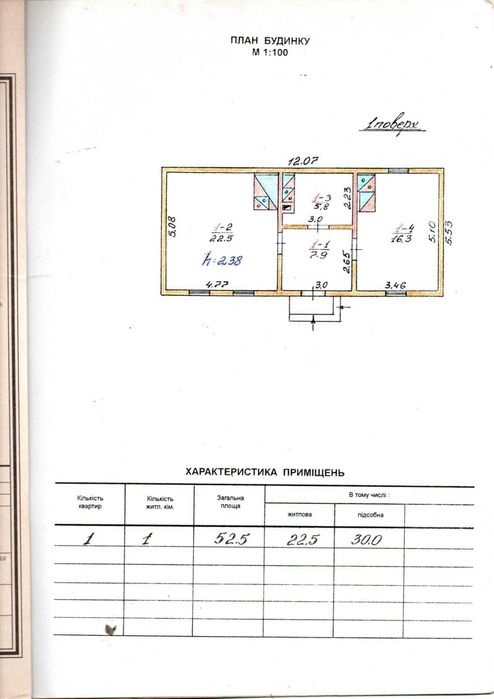 ПЛАН БУДИНКУ
М 1:100
1 поверх
12.07
1-3
5.8
2.23
3.0
5.08
1-2
22.5
1-4
16.3
5.10
5.53
1-1
7.9
2.65
h=2.38
4.77
3.0
3.46
ХАРАКТЕРИСТИКА ПРИМІЩЕНЬ
Кількість квартир
Кількість житл. кім.
Загальна площа
В тому числі :
житлова
підсобна
1 1 52.5 22.5 30.0